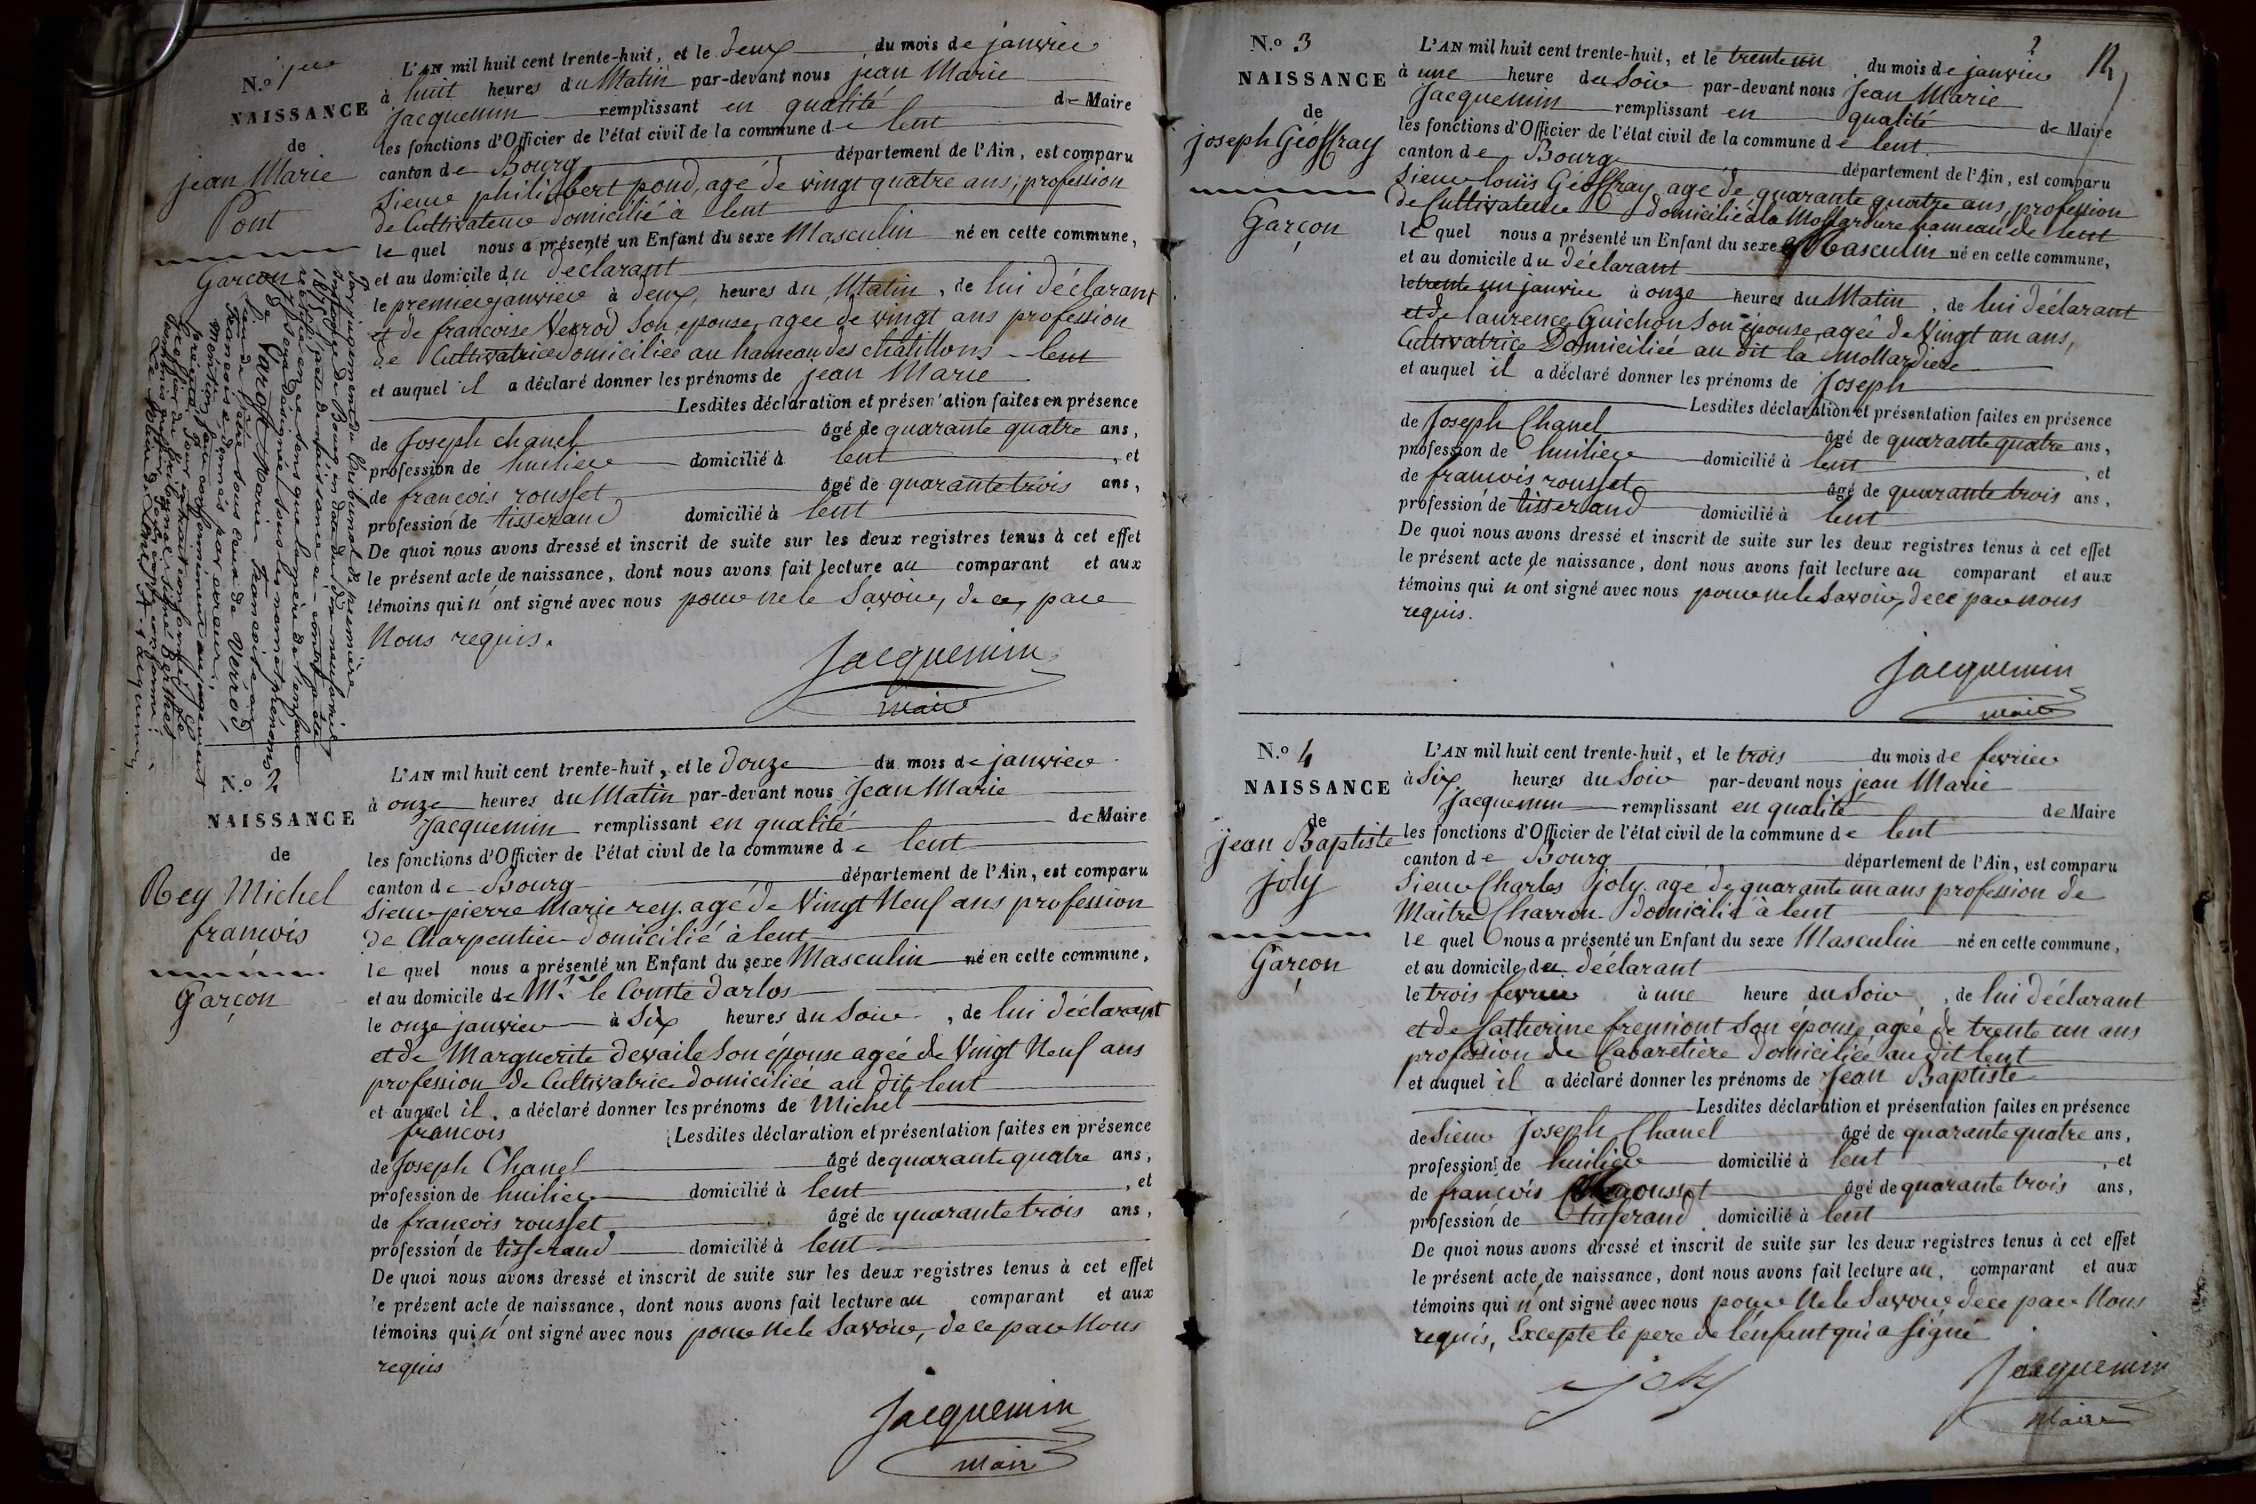 N.º 1er
NAISSANCE
de
jean Marie
Pont
Garçon
L'AN mil huit cent trente-huit, et le deux du mois de janvier
à huit heures du Matin par-devant nous jean Marie
jacquemin remplissant en qualité de Maire
les fonctions d'Officier de l'état civil de la commune de lent
canton de Bourg département de l'Ain, est comparu
Sieur philibert pond, agé de vingt quatre ans, profession
de Cultivateur domicilié à lent
le quel nous a présenté un Enfant du sexe Masculin né en cette commune,
et au domicile du declarant
le premier janvier à deux heures du Matin, de lui déclarant
et de francoise Verrod son epouse, agee de vingt ans profession
de Cultivatrice domiciliée au hameau des chatillons lent
et auquel il a déclaré donner les prénoms de jean Marie
Lesdites déclaration et présentation faites en présence
de Joseph chanel âgé de quarante quatre ans,
profession de huilier domicilié à lent, et
de francois rousset âgé de quarante trois ans,
profession de tisserand domicilié à lent
De quoi nous avons dressé et inscrit de suite sur les deux registres tenus à cet effet
le présent acte de naissance, dont nous avons fait lecture au comparant et aux
témoins qui n'ont signé avec nous pour ne le Savoir, de ce, par
Nous requis.
Jacquemin
maire
Par jugement du tribunal de première
instance de Bourg en date du
1875 l'acte de naissance ci-contre a été
rectifié en ce sens que la mère de l'enfant
y sera désignée sous les noms et prénoms
de Varoff Marie Francoise, au
lieu de l'être sous ceux de Verrod
Francoise donnés par erreur,
mention faite conformément au jugement
précité, pour extrait conforme, le
Greffier du tribunal signé Berthet
N.º 2
NAISSANCE
de
Rey Michel
francois
Garçon
L'AN mil huit cent trente-huit, et le douze du mois de janvier
à onze heures du Matin par-devant nous Jean Marie
Jacquemin remplissant en qualité de Maire
les fonctions d'Officier de l'état civil de la commune de lent
canton de Bourg département de l'Ain, est comparu
Sieur pierre Marie rey. agé de Vingt Neuf ans profession
de Charpentier domicilié à lent
le quel nous a présenté un Enfant du sexe Masculin né en cette commune,
et au domicile de Mr. le Comte Darlos
le onze janvier à Six heures du Soir, de lui déclarant
et de Marguerite devaile Son épouse agée de Vingt Neuf ans
profession de Cultivatrice domiciliée au dit lent
et auquel il a déclaré donner les prénoms de Michel
francois Lesdites déclaration et présentation faites en présence
de Joseph Chanel âgé de quarante quatre ans,
profession de huilier domicilié à lent, et
de francois rousset âgé de quarante trois ans,
profession de tisserand domicilié à lent
De quoi nous avons dressé et inscrit de suite sur les deux registres tenus à cet effet
le présent acte de naissance, dont nous avons fait lecture au comparant et aux
témoins qui n'ont signé avec nous pour Ne le Savoir, de ce par Nous
requis
Jacquemin
maire
2
N.º 3
NAISSANCE
de
joseph Géoffray
Garçon
L'AN mil huit cent trente-huit, et le trente un du mois de janvier
à une heure du Soir par-devant nous Jean Marie
Jacquemin remplissant en qualité de Maire
les fonctions d'Officier de l'état civil de la commune de lent
canton de Bourg département de l'Ain, est comparu
Sieur louis Géoffray agé de quarante quatre ans, profession
de Cultivateur domicilié à la Mollardiere hameau de lent
le quel nous a présenté un Enfant du sexe Masculin né en cette commune,
et au domicile du déclarant
le trente un janvier à onze heures du Matin, de lui déclarant
et de laurence Guichon Son épouse, agée de Vingt un ans,
Cultivatrice Domiciliée au dit la mollardiere
et auquel il a déclaré donner les prénoms de Joseph
Lesdites déclaration et présentation faites en présence
de Joseph Chanel âgé de quarante quatre ans,
profession de huilier domicilié à lent, et
de francois rousset âgé de quarante trois ans,
profession de tisserand domicilié à lent
De quoi nous avons dressé et inscrit de suite sur les deux registres tenus à cet effet
le présent acte de naissance, dont nous avons fait lecture au comparant et aux
témoins qui n'ont signé avec nous pour ne le Savoir, de ce par nous
requis.
Jacquemin
maire
N.º 4
NAISSANCE
de
jean Baptiste
joly
Garçon
L'AN mil huit cent trente-huit, et le trois du mois de fevrier
à Six heures du Soir par-devant nous jean Marie
Jacquemin remplissant en qualité de Maire
les fonctions d'Officier de l'état civil de la commune de lent
canton de Bourg département de l'Ain, est comparu
Sieur Charles joly. agé de quarante un ans profession de
Maître Charron. domicilié à lent
le quel nous a présenté un Enfant du sexe Masculin né en cette commune,
et au domicile du déclarant
le trois fevrier à une heure du Soir, de lui déclarant
et de Catherine fremiont Son épouse, agée de trente un ans
profession de Cabaretière domiciliée au dit lent
et auquel il a déclaré donner les prénoms de Jean Baptiste
Lesdites déclaration et présentation faites en présence
de Sieur Joseph Chanel âgé de quarante quatre ans,
profession de huilier domicilié à lent, et
de francois Rousset âgé de quarante trois ans,
profession de tisserand domicilié à lent
De quoi nous avons dressé et inscrit de suite sur les deux registres tenus à cet effet
le présent acte de naissance, dont nous avons fait lecture au comparant et aux
témoins qui n'ont signé avec nous pour Ne le Savoir de ce par Nous
requis, Excepte le pere de l'énfant qui a signé
joly
Jacquemin
Maire